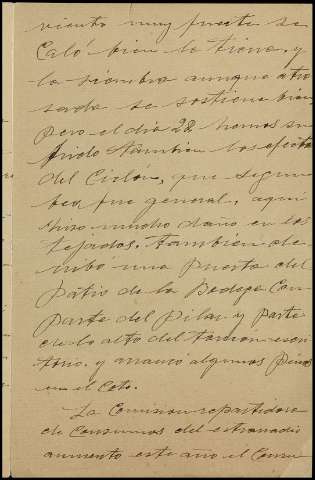 viento muy fuerte se
Caló bien la tierra, y
la siembra aunque atra
sada se sostiene bien,
pero el dia 22 hemos su
frido tambien los efectos
del Ciclon, que segun
fue general, aqui
hizo mucho daño en los
tejados. Tambien de
rribó una puerta del
pátio de la Bodega Con
parte del pilar y parte
de lo alto del
y arrancó algunos pinos
en el Coto.
La Comision repartidora
de Consumos del estraradio
aumento este año el Consu